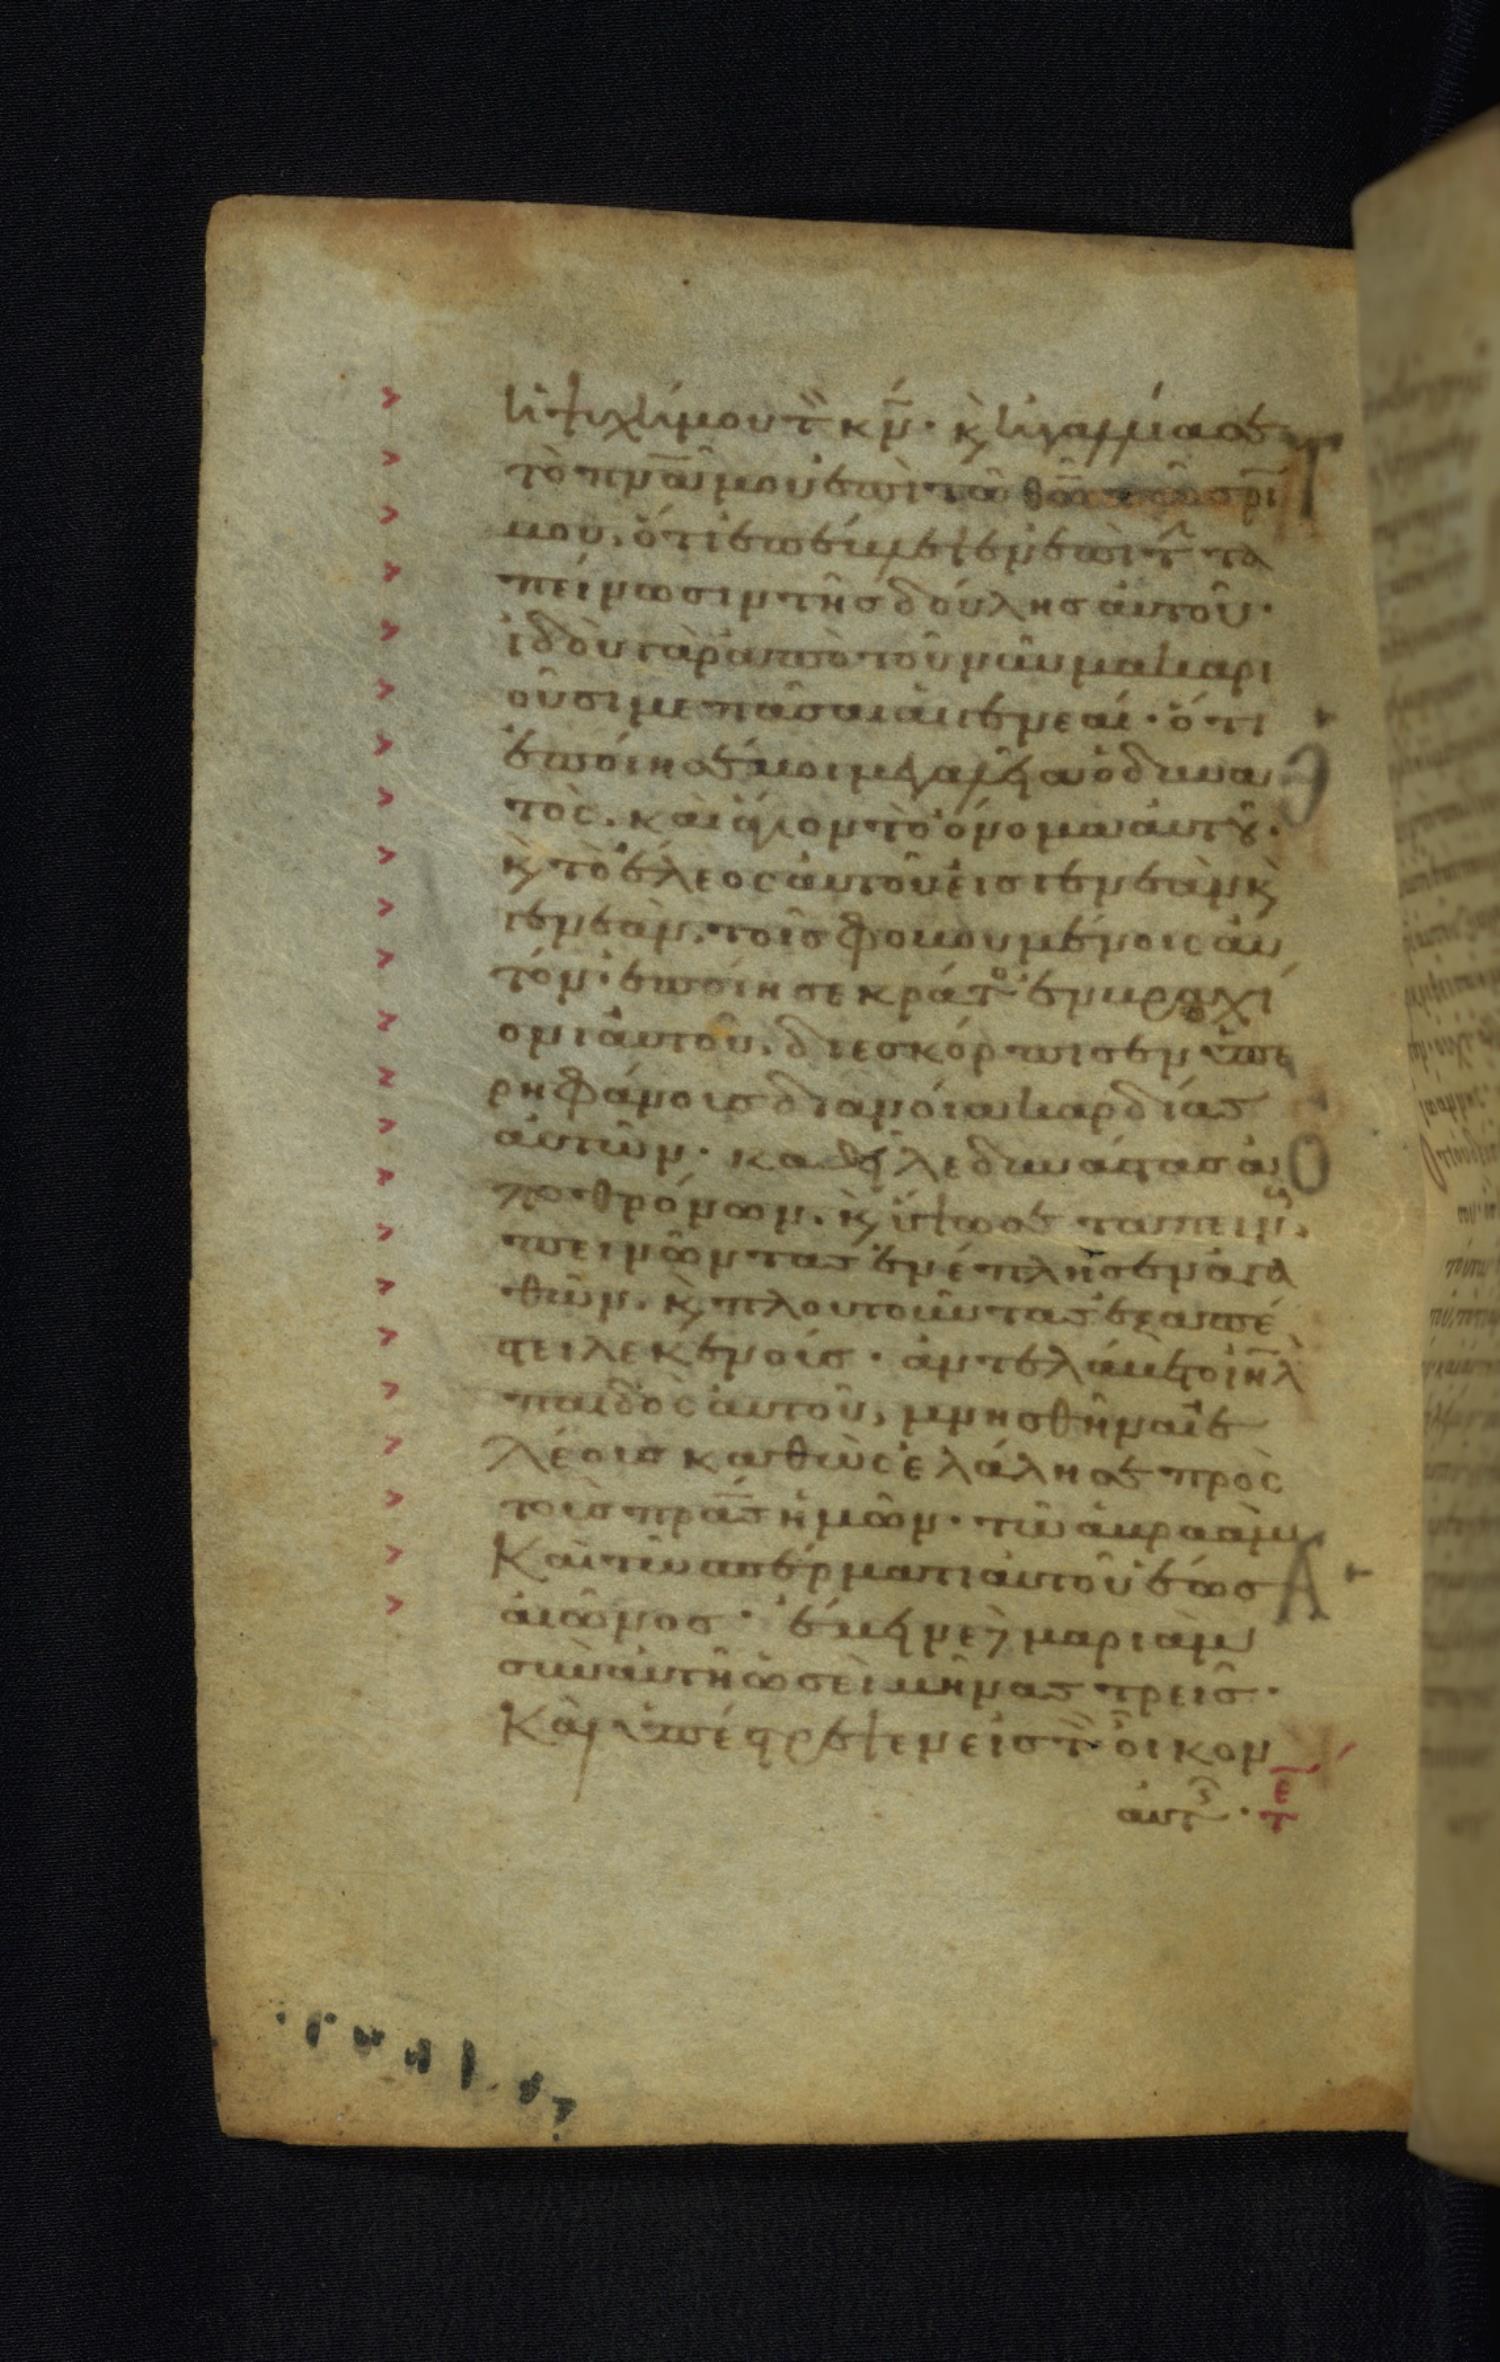 ἡ ψυχή μου τὸν κν̄· κ̀ ἠγαλλίασε
τὸ πνᾱ μου ἐπὶ τῶ θω̄ τῶ σρ̄ι
μου, ὅτι ἐπέβλεψεν ἐπὶ τὴν τα
πείνωσιν τῆς δούλης αὐτοῦ·
ἰδοὺ γὰρ ἀπὸ τοῦ νῦν μακαρι
οῦσι με πᾶσαι αἱ γενεαί· ὅτι
ἐποίησέ μοι μεγαλεῖα ὁ δυνα
τὸς, καὶ ἅγιον τὸ ὄνομα αὐτοῦ·
κ̀ τὸ ἔλεος αὐτοῦ εἰς γενεὰν κ̀
γενεὰν, τοῖς φοβουμένοις αὐ
τόν· ἐποίησε κράτος ἐν βραχί
ονι αὐτοῦ, διεσκόρπισεν ὑπε
ρηφάνους διανοία καρδίας
αὐτῶν· καθεῖλε δυνάστας ἀ
πὸ θρόνων, κ̀ ὕψωσε ταπειν·
πεινῶντας ἐνέπλησεν ἀγα
θῶν, κ̀ πλουτοῦντας ἐξαπέ
στειλε κενούς· ἀντελάβετο ιη̄λ
παιδὸς αὐτοῦ, μνησθῆναι ἐ
λέους καθὼς ἐλάλησε πρὸς
τοὺς πρᾱς ἡμῶν· τῶ ἀβραὰμ
Καὶ τῶ σπέρματι αὐτοῦ ἕως
αἰῶνος· ἔμεινε μαριὰμ
σὺν αὐτῆ ὡσεὶ μῆνας τρεῖς·
Καὶ ὑπέστρεψεν εἰς τὸν οἶκον
αὐτῆς· τε